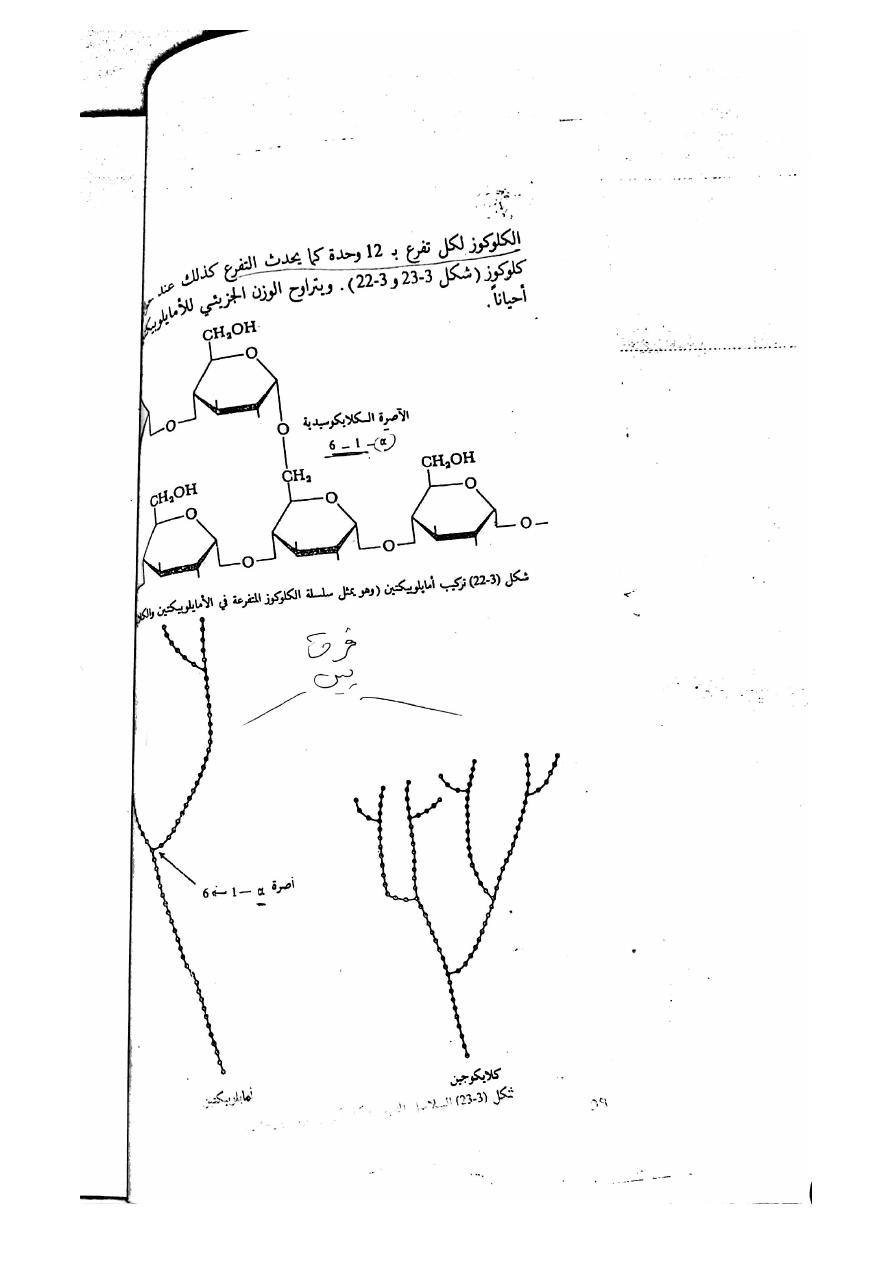 الكلوكوز لكل تفرع بـ 12 وحدة كما يحدث التفرع كذلك عند
كلوكوز (شكل 3-23 و 3-22). ويتراوح الوزن الجزيئي
أحياناً.
CH₂OH
O
O
O
الآصرة الكلايكوسيدية
α – 1 – 6
CH₂
CH₂OH
CH₂OH
O
O
O
O
O
O –
شكل (3-22) تركيب أمايلوبيكتين (وهو يمثل سلسلة الكلوكوز المتفرعة في الأمايلوبيكتين
فرق
بين
آصرة α – 1 → 6
كلايكوجين
أمايلوبيكتين
شكل (3-23)